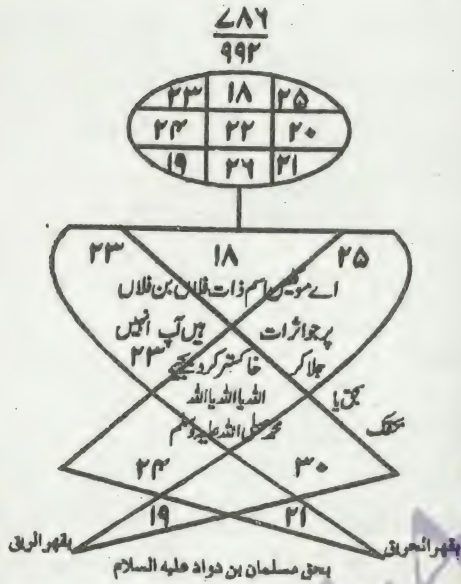 ۷۸۶
۹۹۲
۲۳ ۱۸ ۲۵
۲۴ ۲۲ ۲۰
۱۹ ۲۶ ۲۱
۲۳ ۱۸ ۲۵
اے موکلین اسم ذات فلاں بن فلاں
پر جو اثرات ہیں آپ انہیں
جلا کر خاکستر کر دیجیے ۲۳
بحق یا اللہ یا اللہ یا اللہ
محمد صلی اللہ علیہ وسلم
۲۴ ۳۰
۱۹ ۲۱
بقهرالحریق بقهرالریق
بحق سلمان بن دواد علیه السلام